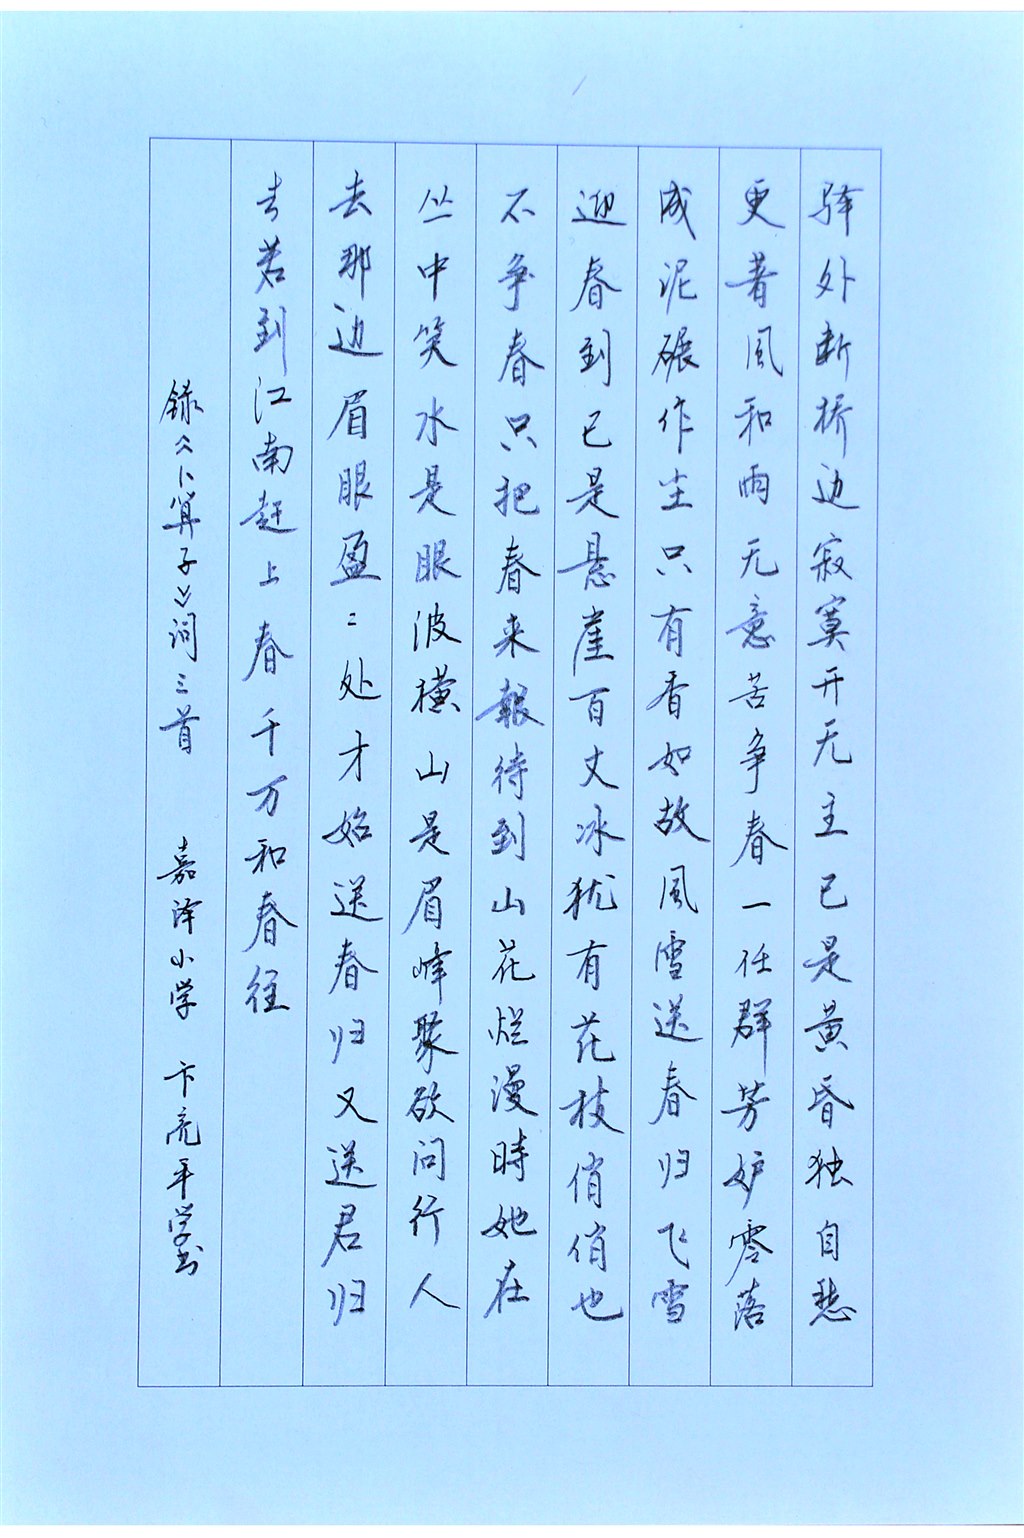 驿外断桥边寂寞开无主已是黄昏独自愁
更著風和雨无意苦争春一任群芳妒零落
成泥碾作尘只有香如故風雪送春归飞雪
迎春到已是悬崖百丈冰犹有花枝俏俏也
不争春只把春来報待到山花烂漫時她在
丛中笑水是眼波横山是眉峰聚欲问行人
去那边眉眼盈〻处才始送春归又送君归
去若到江南赶上春千万和春住
錄《卜算子》词三首 嘉泽小学 卞亮平学书